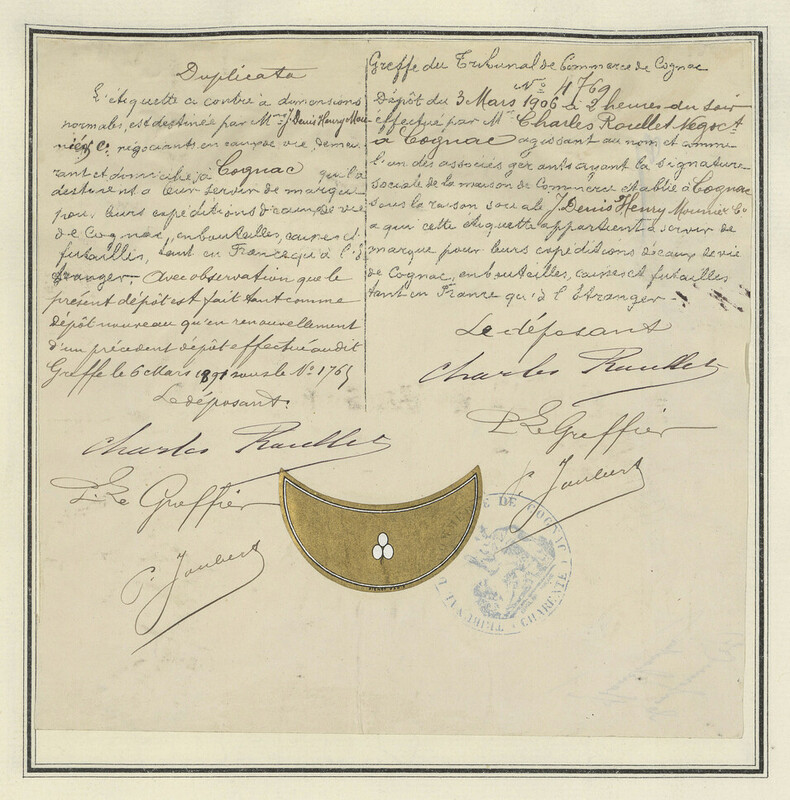 Duplicata
L'étiquette ci contre à dimensions
normales, est destinée par Mrs J. Denis Henry Mou
nié & Co. négociants en eaux de vie demeu
rant et domicilié à Cognac qui la
destinent à leur servir de marque
pour leurs expéditions d'eaux de vie
de Cognac, en bouteilles, caisses et
futailles, tant en France qu'à l'E
tranger. Avec observation que le
présent dépôt est fait tant comme
dépôt nouveau qu'en renouvellement
d'un précédent dépôt effectué au dit
Greffe le 6 Mars 1891 sous le No 1765
Le déposant:
Charles Roullet
P. Le Greffier
P. Joubert
Greffe du Tribunal de Commerce de Cognac
No 4769
Dépôt du 3 Mars 1906 à 2 heures du soir
effectué par Mr Charles Roullet Négoct
à Cognac agissant au nom et comme
l'un des associés gérants ayant la signature
sociale de la maison de Commerce établie à Cognac
sous la raison sociale J. Denis Henry Mounier Co
a qui cette étiquette appartient à servir de
marque pour leurs expéditions d'eaux de vie
de Cognac, en bouteilles, caisses et futailles
tant en France qu'à l'Etranger
Le déposant
Charles Roullet
P. Le Greffier
P. Joubert
TRIBUNAL DE COMMERCE DE COGNAC
CHARENTE